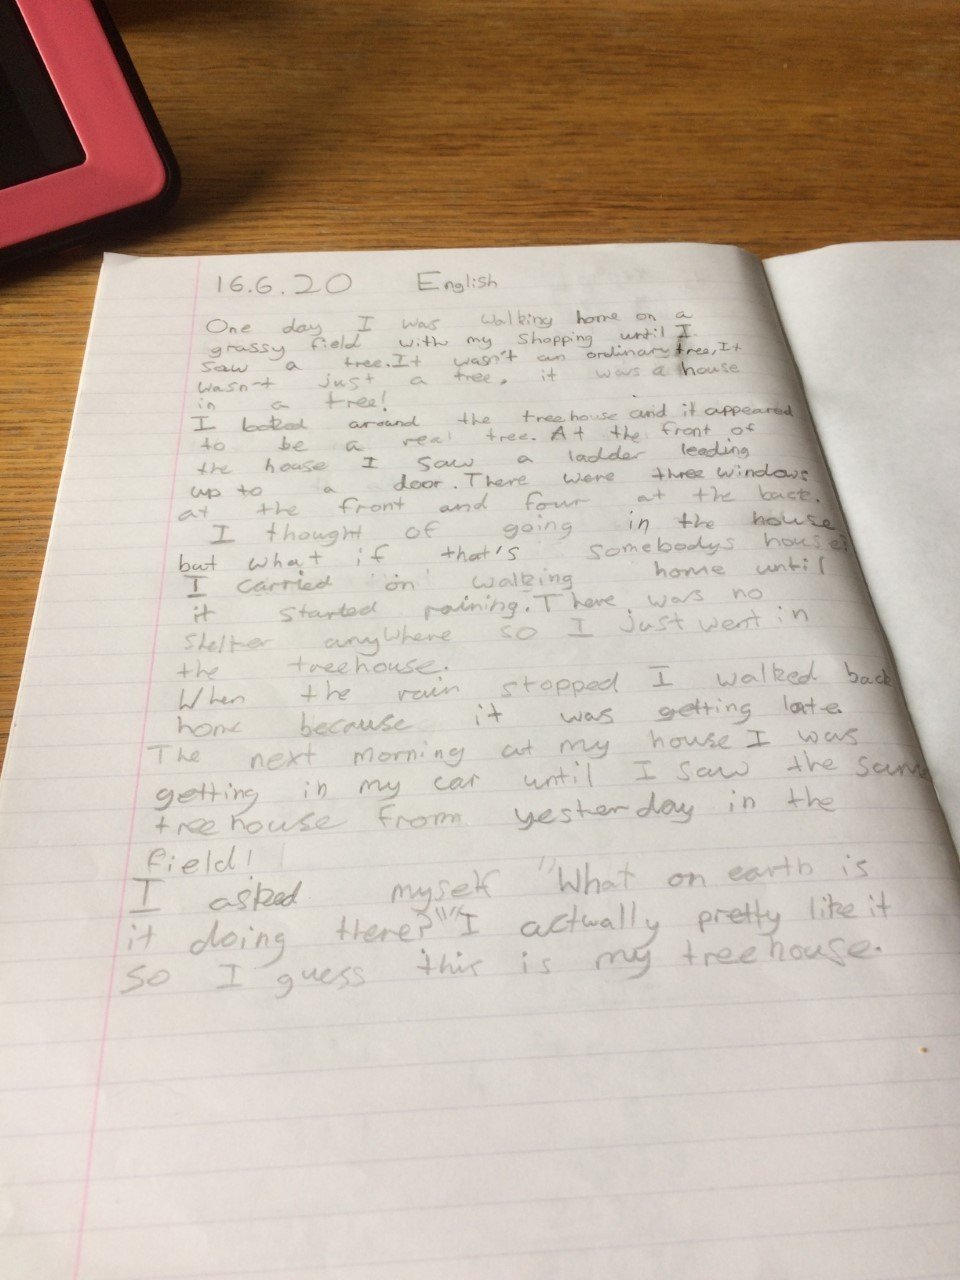 16.6.20 English
One day I was walking home on a
grassy field with my shopping until I
saw a tree. It wasn't an ordinary tree, It
wasn't just a tree, it was a house
in a tree!
I looked around the treehouse and it appeared
to be a real tree. At the front of
the house I saw a ladder leading
up to a door. There were three windows
at the front and four at the back.
I thought of going in the house
but what if that's somebodys house?
I carried on walking home until
it started raining. There was no
shelter anywhere so I just went in
the treehouse.
When the rain stopped I walked back
home because it was getting late.
The next morning at my house I was
getting in my car until I saw the same
treehouse from yesterday in the
field!
I asked myself "What on earth is
it doing there?" "I actually pretty like it
so I guess this is my treehouse.